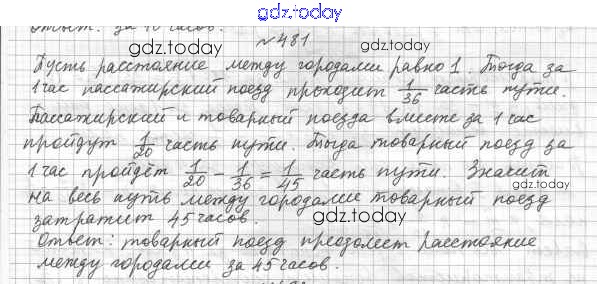 gdz.today
Ответ: за 40 часов.
gdz.today
№481
Пусть расстояние между городами равно 1. Тогда за
1 час пассажирский поезд проходит 1/36 часть пути.
Пассажирский и товарный поезда вместе за 1 час
пройдут 1/20 часть пути. Тогда товарный поезд за
1 час пройдёт 1/20 - 1/36 = 1/45 часть пути. Значит
gdz.today
на весь путь между городами товарный поезд
затратит 45 часов.
gdz.today
Ответ: товарный поезд преодолеет расстояние
между городами за 45 часов.